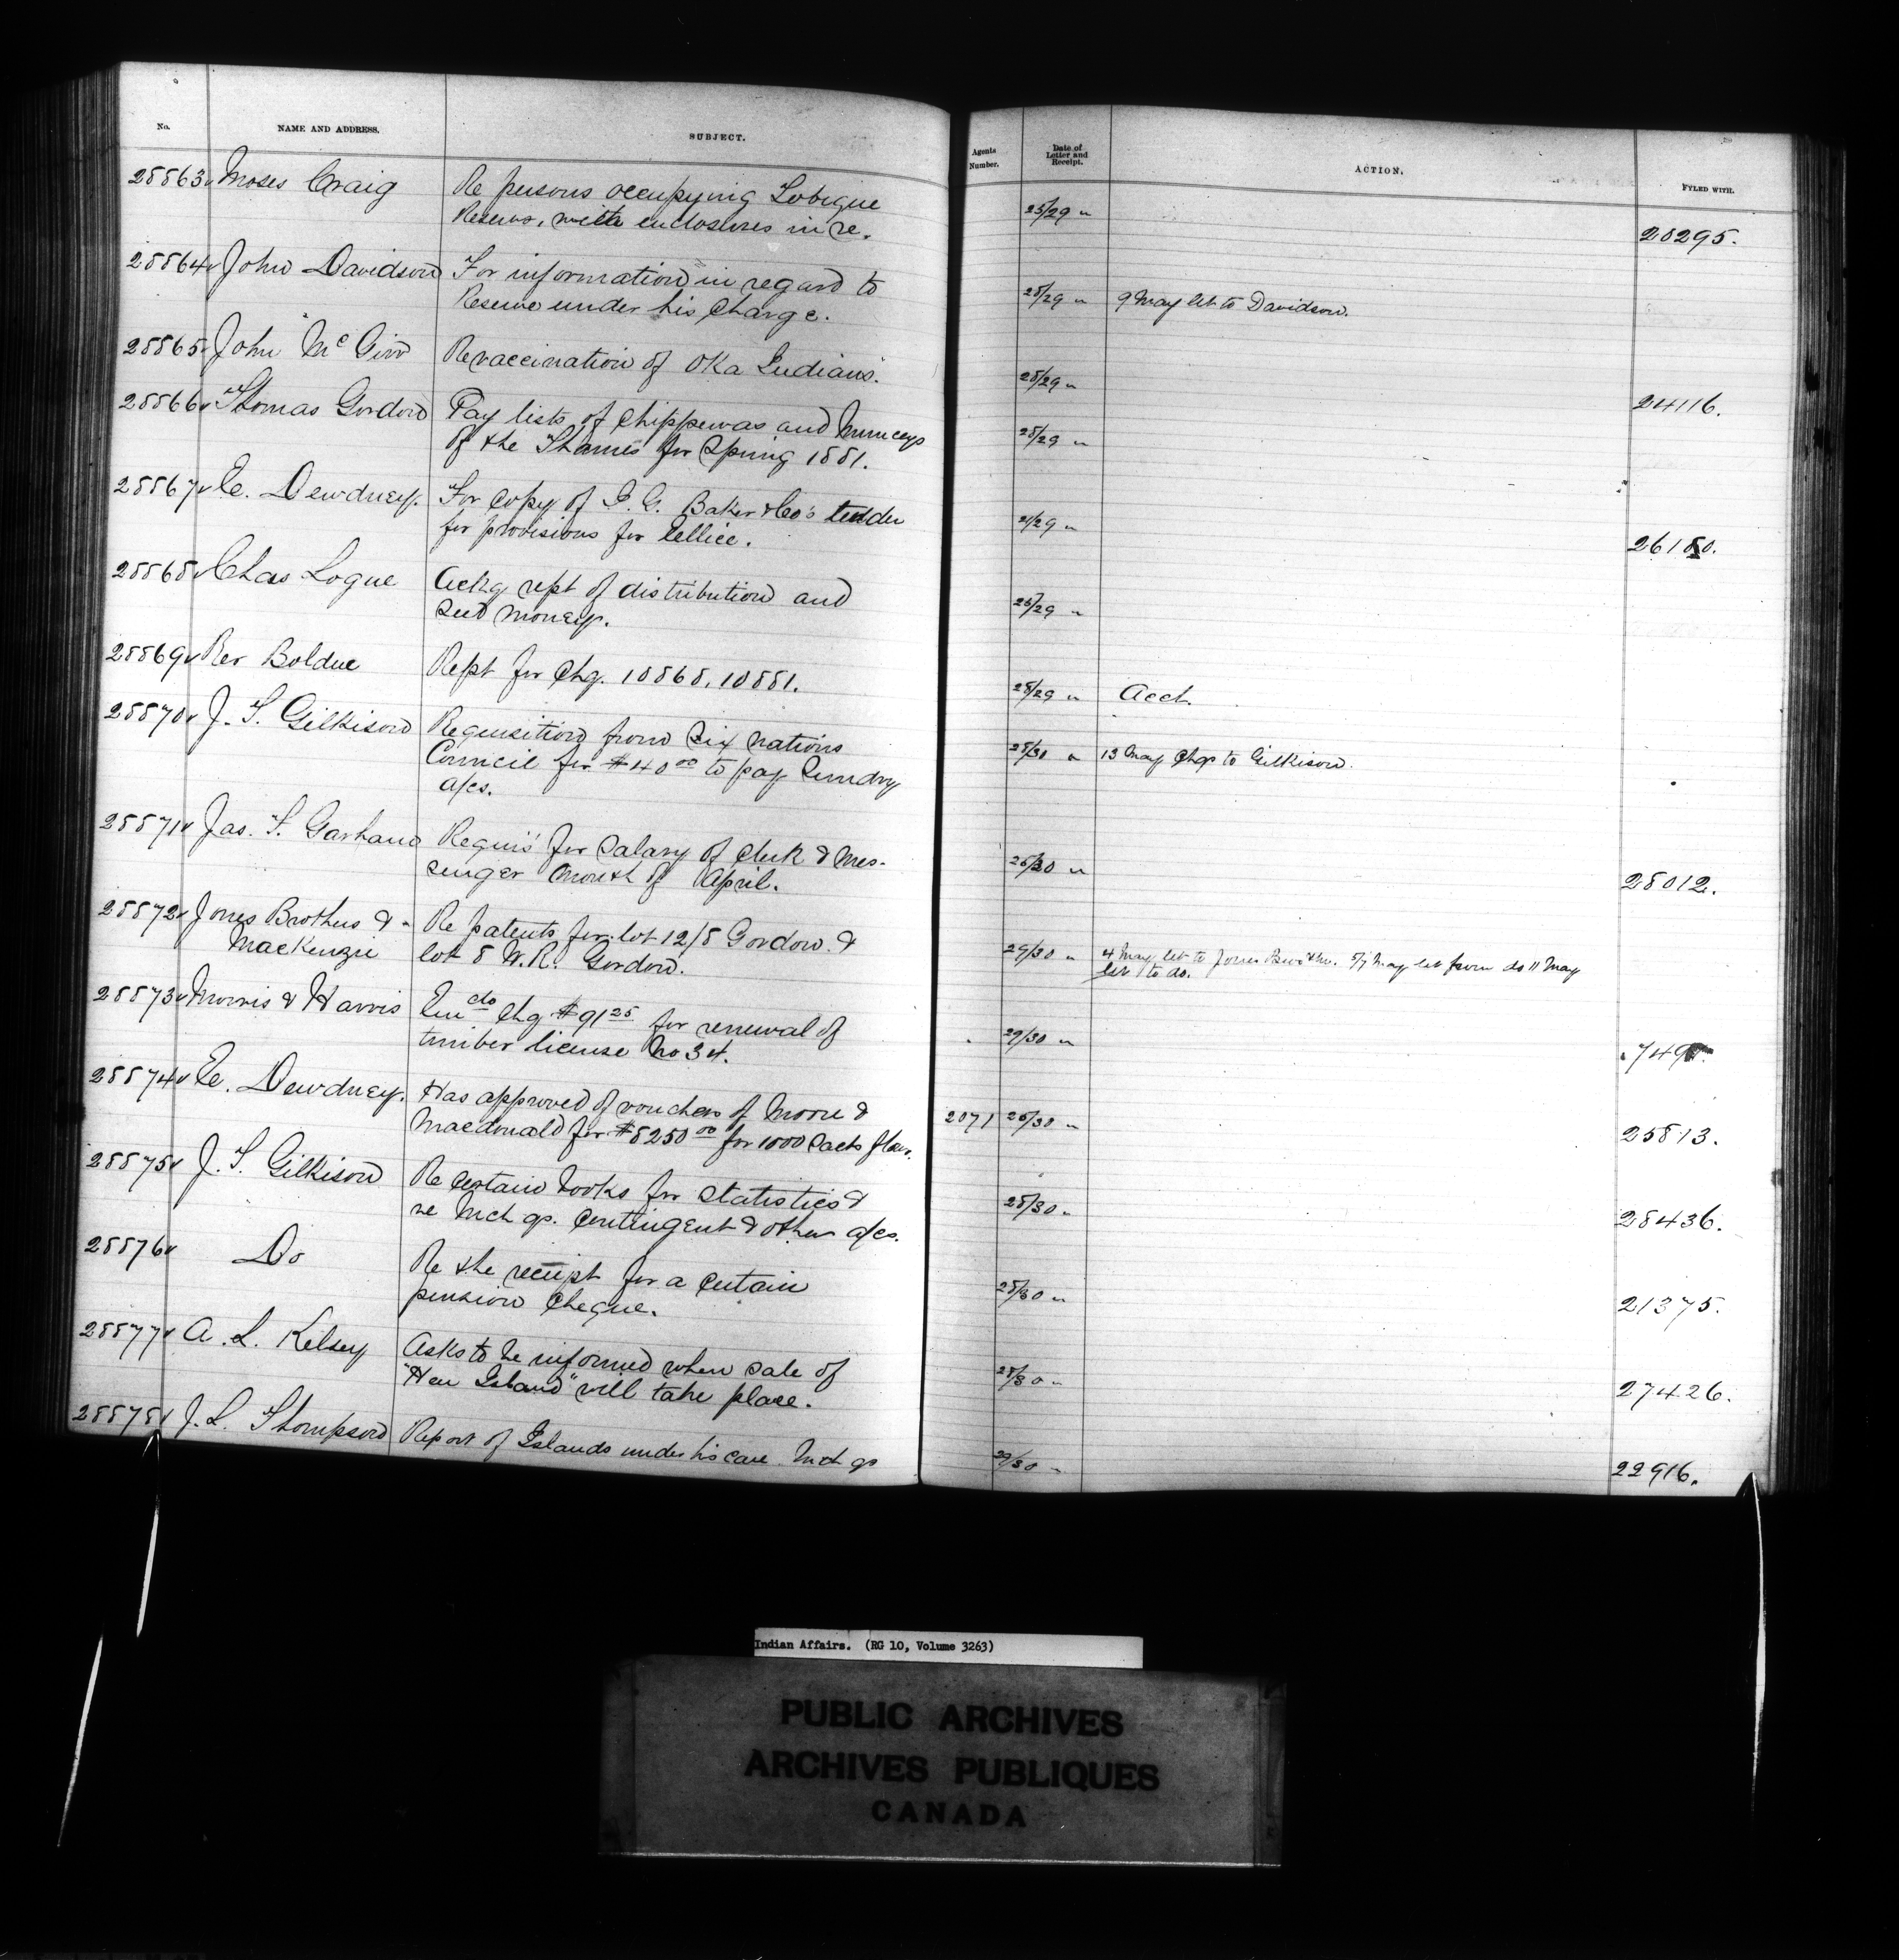 No. NAME AND ADDRESS. SUBJECT. Agents Number. Date of Letter and Receipt. ACTION. FYLED WITH.
28863 Moses Craig Re persons occupying Tobique 25/29 "
Reserve, with enclosures in re. 20295.
28864 John Davidson For information in regard to 28/29 " 9 May let to Davidson.
Reserve under his Charge.
28865 John McGirr Revaccination of Oka Indians. 28/29 " 24116.
28866 Thomas Gordon Pay lists of Chippewas and Munceys 28/29 "
of the Thames for Spring 1881.
28867 E. Dewdney. For copy of I. G. Baker & Co's tender 21/29 "
for provisions for Ellice. 26180.
28868 Chas Logue Ackg rept of distribution and 26/29 "
seed money.
28869 Rev Bolduc Rept for Chq. 10868, 10881. 28/29 " Acct.
28870 J. T. Gilkison Requisition from Six Nations 28/30 " 13 May Chq to Gilkison.
Council for $40.00 to pay Sundry
a/cs.
28871 Jas. T. Garhano Requis' for Salary of Clerk & Mes- 26/30 "
senger month of April. 28012.
28872 Jones Brothers & Re patents for lot 12/8 Gordon & 29/30 " 4 May let to Jones Bros & Mc. 5/7 May let from do 11 May
MacKenzie lot 8 W.R. Gordon. let to do.
28873 Morris & Harris Encdo Chq $91.25 for renewal of 29/30 "
timber license No 34. 749
28874 E. Dewdney. Has approved of vouchers of Moore & 2071 26/30 "
Macdonald for $8250.00 for 1000 sacks flour. 25813.
28875 J. T. Gilkison Re certain books for Statistics & 28/30 "
re Mch qr. Contingent & other a/cs. 28436.
28876 Do Re the receipt for a certain 28/30 "
pension cheque. 21375.
28877 A. L. Kelsey Asks to be informed when sale of 28/30 "
"Hen Island" will take place. 27426.
28878 J. L. Thompson Report of Islands under his care Mch qr 29/30 " 22916.
Indian Affairs. (RG 10, Volume 3263)
PUBLIC ARCHIVES
ARCHIVES PUBLIQUES
CANADA